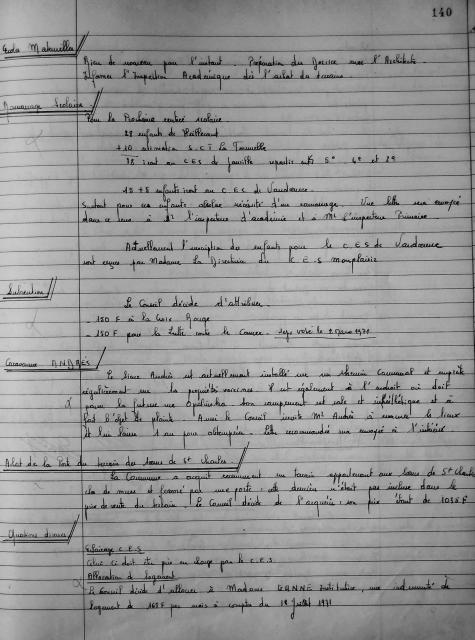 140
Ecole Maternelle
Rien de nouveau pour l'instant. Préparation du Dossier avec l'Architecte.
Informer l'Inspection Académique dès l'achat du terrain.
Ramassage Scolaire
Pour la Prochaine rentrée scolaire.
28 enfants de
+ 10 S.C.I La Tournelle
38 iront au C.E.S de Joinville repartis entre 5° 4° et 3°
15 + 8 enfants iront au C.E.S de Vandrezanne.
Surtout pour ces enfants absolue nécessité d'un ramassage. Une lettre sera envoyée
dans ce sens à Mr l'inspecteur d'académie et à Mr l'inspecteur Primaire.
Actuellement l'inscription des enfants pour le C.E.S de Vandrezanne
sont reçues par Madame La Directrice du C.E.S monplaisir
Subvention
Le Conseil décide d'attribuer.
- 150 F à la Croix Rouge
- 150 F pour la Lutte contre le Cancer. voté le 2 Mars 1971
Caravane ANDRES
Le Sieur Andrès est actuellement installé sur un chemin Communal et empiète
régulièrement sur la propriété voisine. Il est également à l'endroit où doit
passer la future rue Son campement est sale et inesthétique et a
fait l'objet de plainte. Aussi le Conseil invite Mr Andrès à évacuer les lieux
et lui laisse 1 an pour obtempérer. Lettre recommandée sera envoyée à l'intéressé
Achat de la Porte du terrain des Soeurs de St Charles.
La Commune a acquis récemment un terrain appartenant aux Soeurs de St Charles
clos de murs et fermé par une porte. cette dernière n'était pas incluse dans le
prix de vente du terrain. Le Conseil décide de l'acquérir, son prix étant de 1035 F
Questions diverses
Eclairage C.E.S
Celui ci doit être pris en charge par le C.E.S
Allocation de logement
Le Conseil décide d'allouer à Madame GANNE Institutrice, une indemnité de
logement de 165 F par mois à compter du 1er Juillet 1971